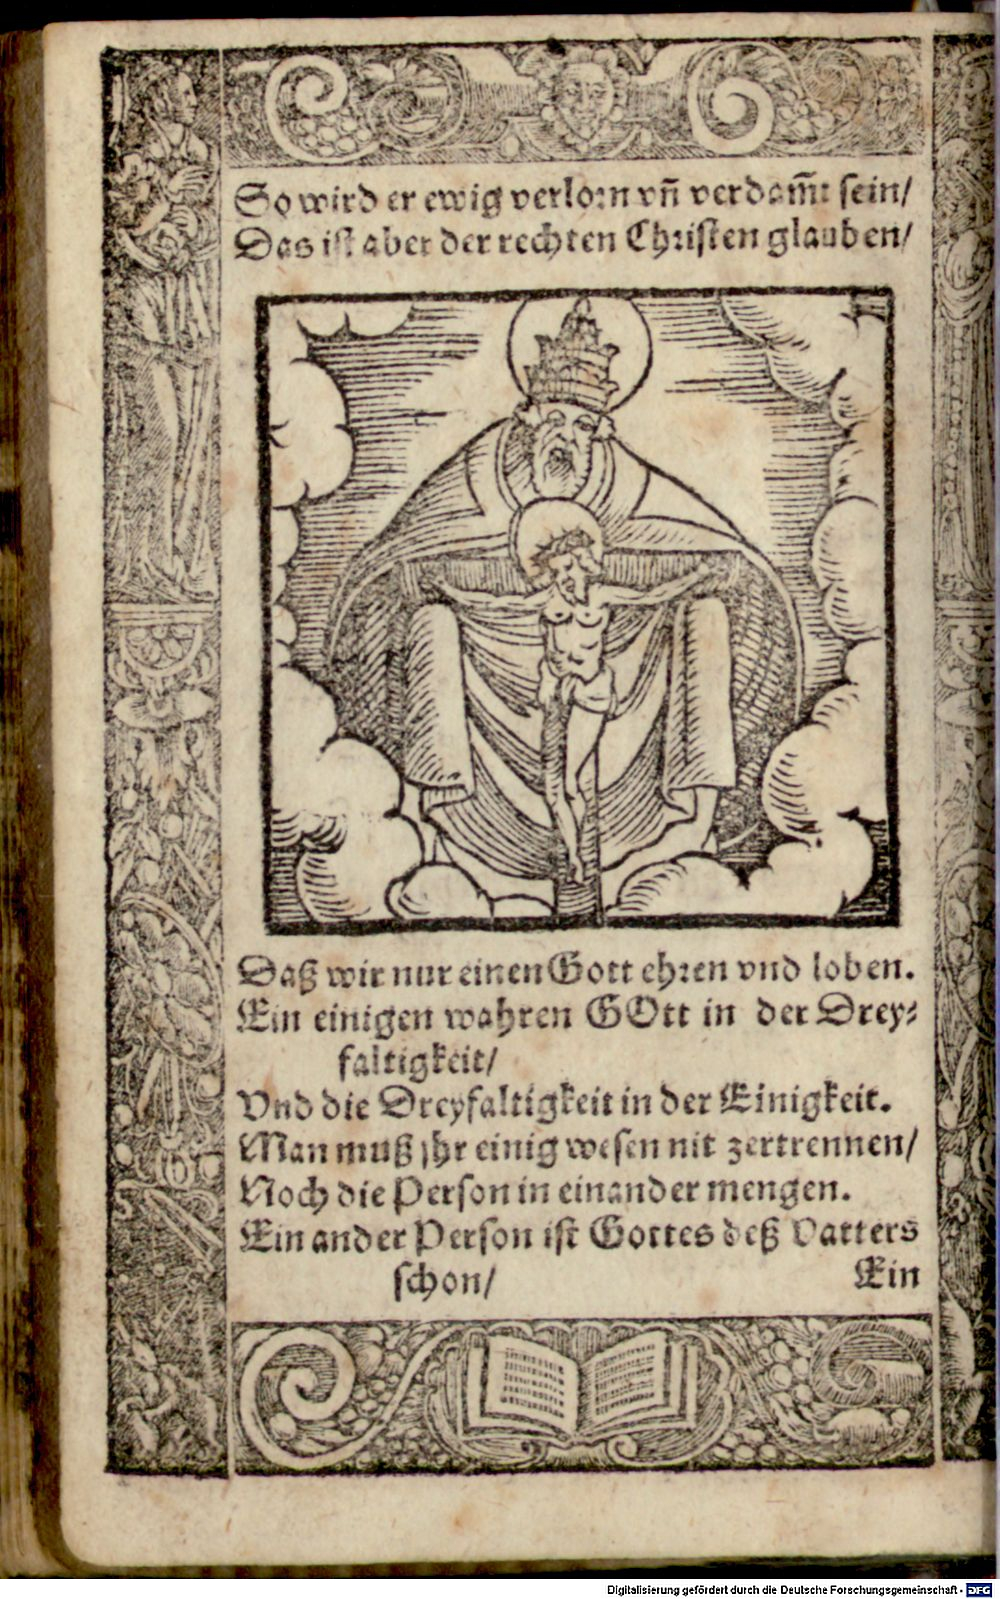 So wird er ewig verlorn vn̄ verdam̄t sein/
Das ist aber der rechten Christen glauben/
Daß wir nur einen Gott ehren vnd loben.
Ein einigen wahren GOtt in der Drey⸗
faltigkeit/
Vnd die Dreyfaltigkeit in der Einigkeit.
Man muß jhr einig wesen nit zertrennen/
Noch die Person in einander mengen.
Ein ander Person ist Gottes deß Vatters
schon/
Ein
Digitalisierung gefördert durch die Deutsche Forschungsgemeinschaft - DFG